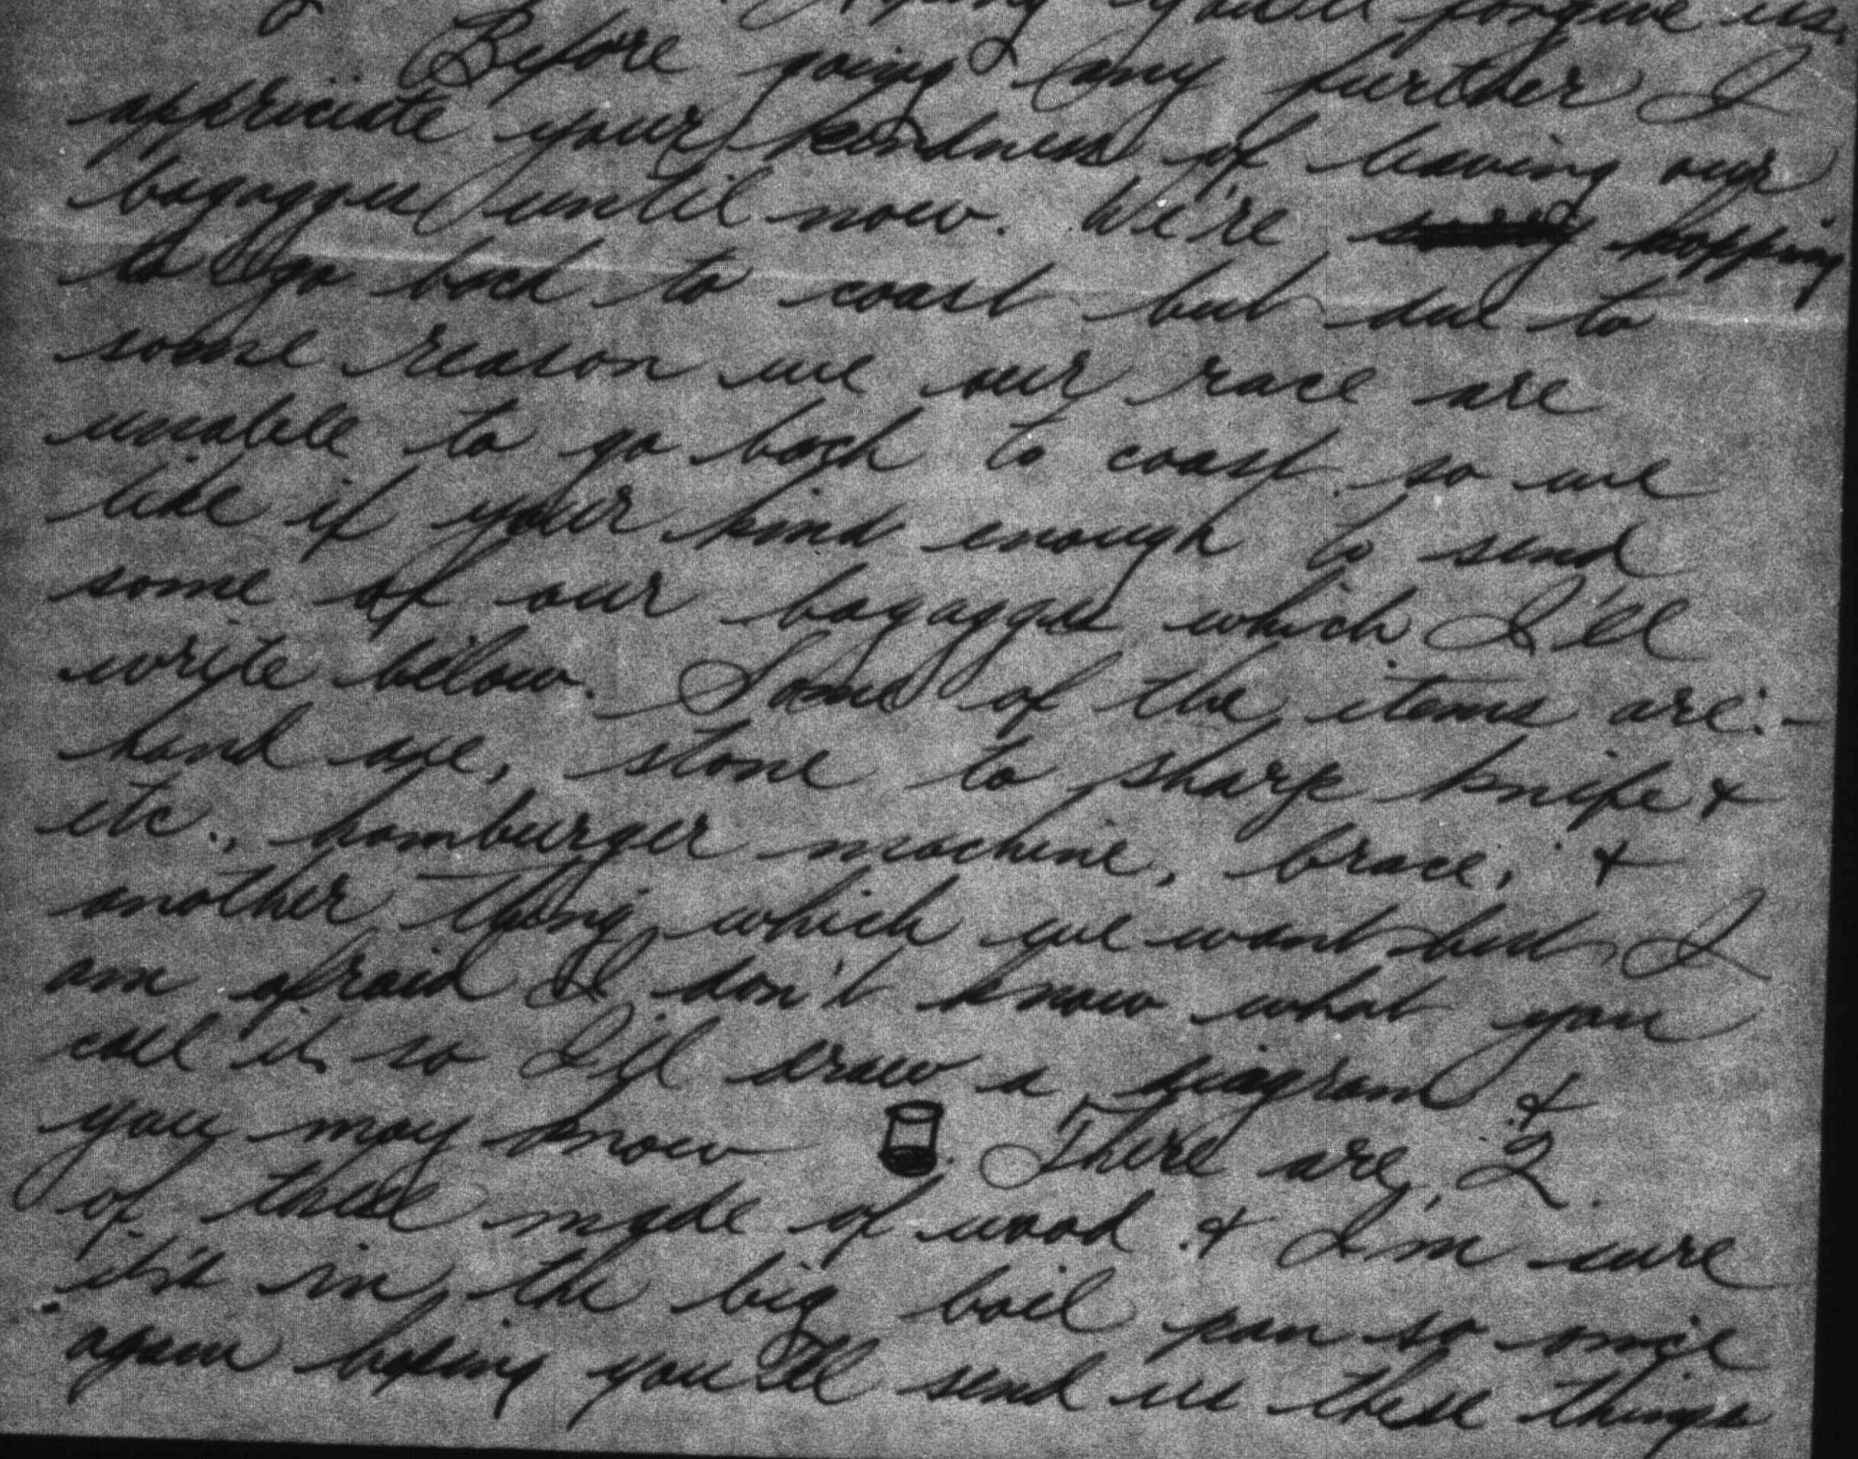 Hoping you'll forgive us.
Before going any further I
appriciate your kindness of leaving our
bagagges until now. We're hopping
to go back to coast but due to
some reason we our race are
unable to go back to coast so we
like if your kind enough to send
some of our bagagges which I'll
write below. Some of the items are:-
hand axe, stone to sharp knife &
etc., hamburger machine, brace, &
another thing which we want but I
am afraid I don't know what you
call it so I'll draw a diagram &
you may know. There are 2
of these made of wood & I'm sure
it's in the big boil pan so once
again hoping you'll send us these things